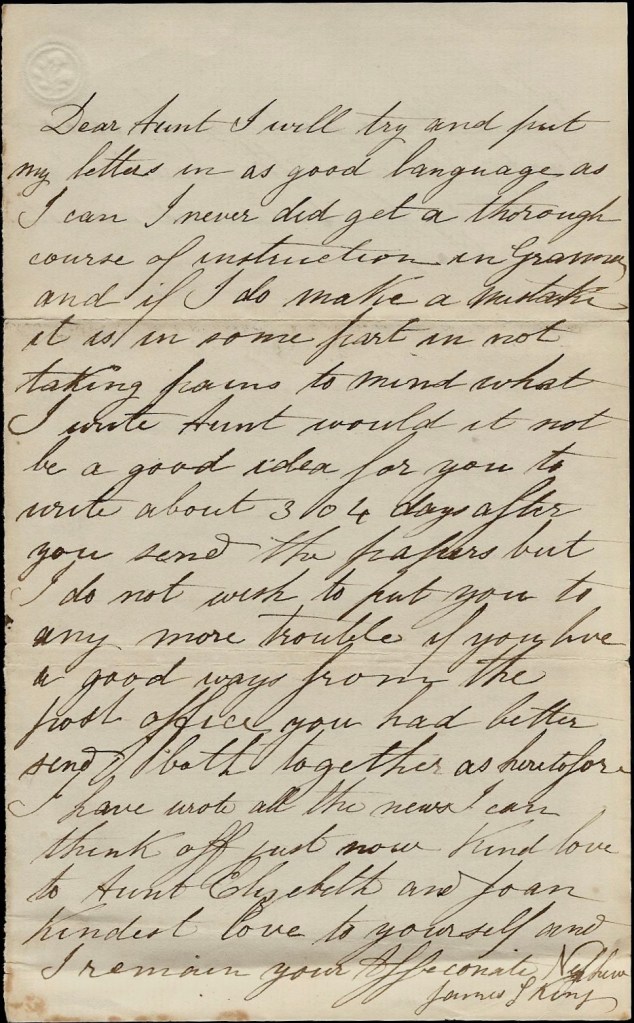 Dear Aunt I will try and put
my letters in as good language as
I can I never did get a thorough
course of instruction in Grammer
and if I do make a mistake
it is in some part in not
taking pains to mind what
I write Aunt would it not
be a good idea for you to
write about 3 o 4 days after
you send the papers but
I do not wish to put you to
any more trouble if you live
a good ways from the
post office you had better
send both together as heretofore
I have wrote all the news I can
think off just now Kind love
to Aunt Elizebeth and Joan
Kindest love to yourself and
I remain your Affeconate Nephew
James S King